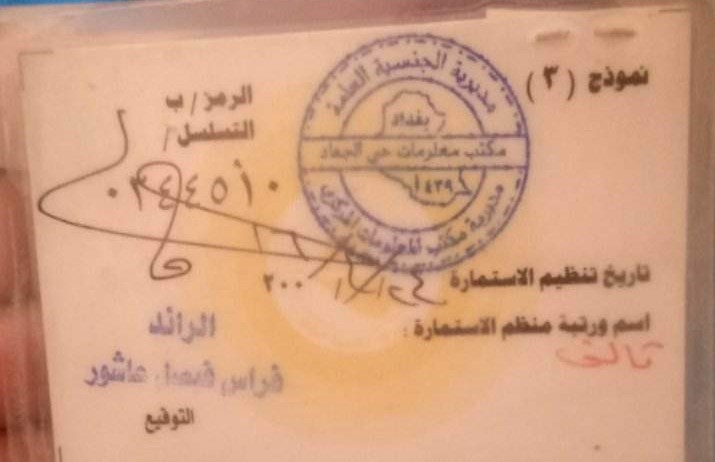 نموذج ( ٣ )
الرمز / ب
التسلسل /
٠٣٤٤٥١٠
مديرية الجنسية العامة
بغداد
مكتب معلومات حي الجهاد
١٤٣٩
تاريخ تنظيم الاستمارة
٢٠٠
اسم ورتبة منظم الاستمارة :
الرائد
فراس فيصل عاشور
التوقيع